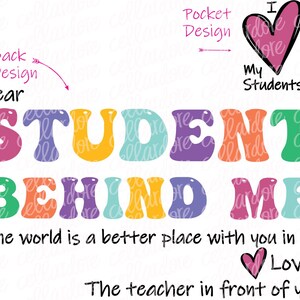 Pocket
Design
I
My
Students
ack
esign
ear
STUDENT
BEHIND ME
he world is a better place with you in
Lov
The teacher in front of y